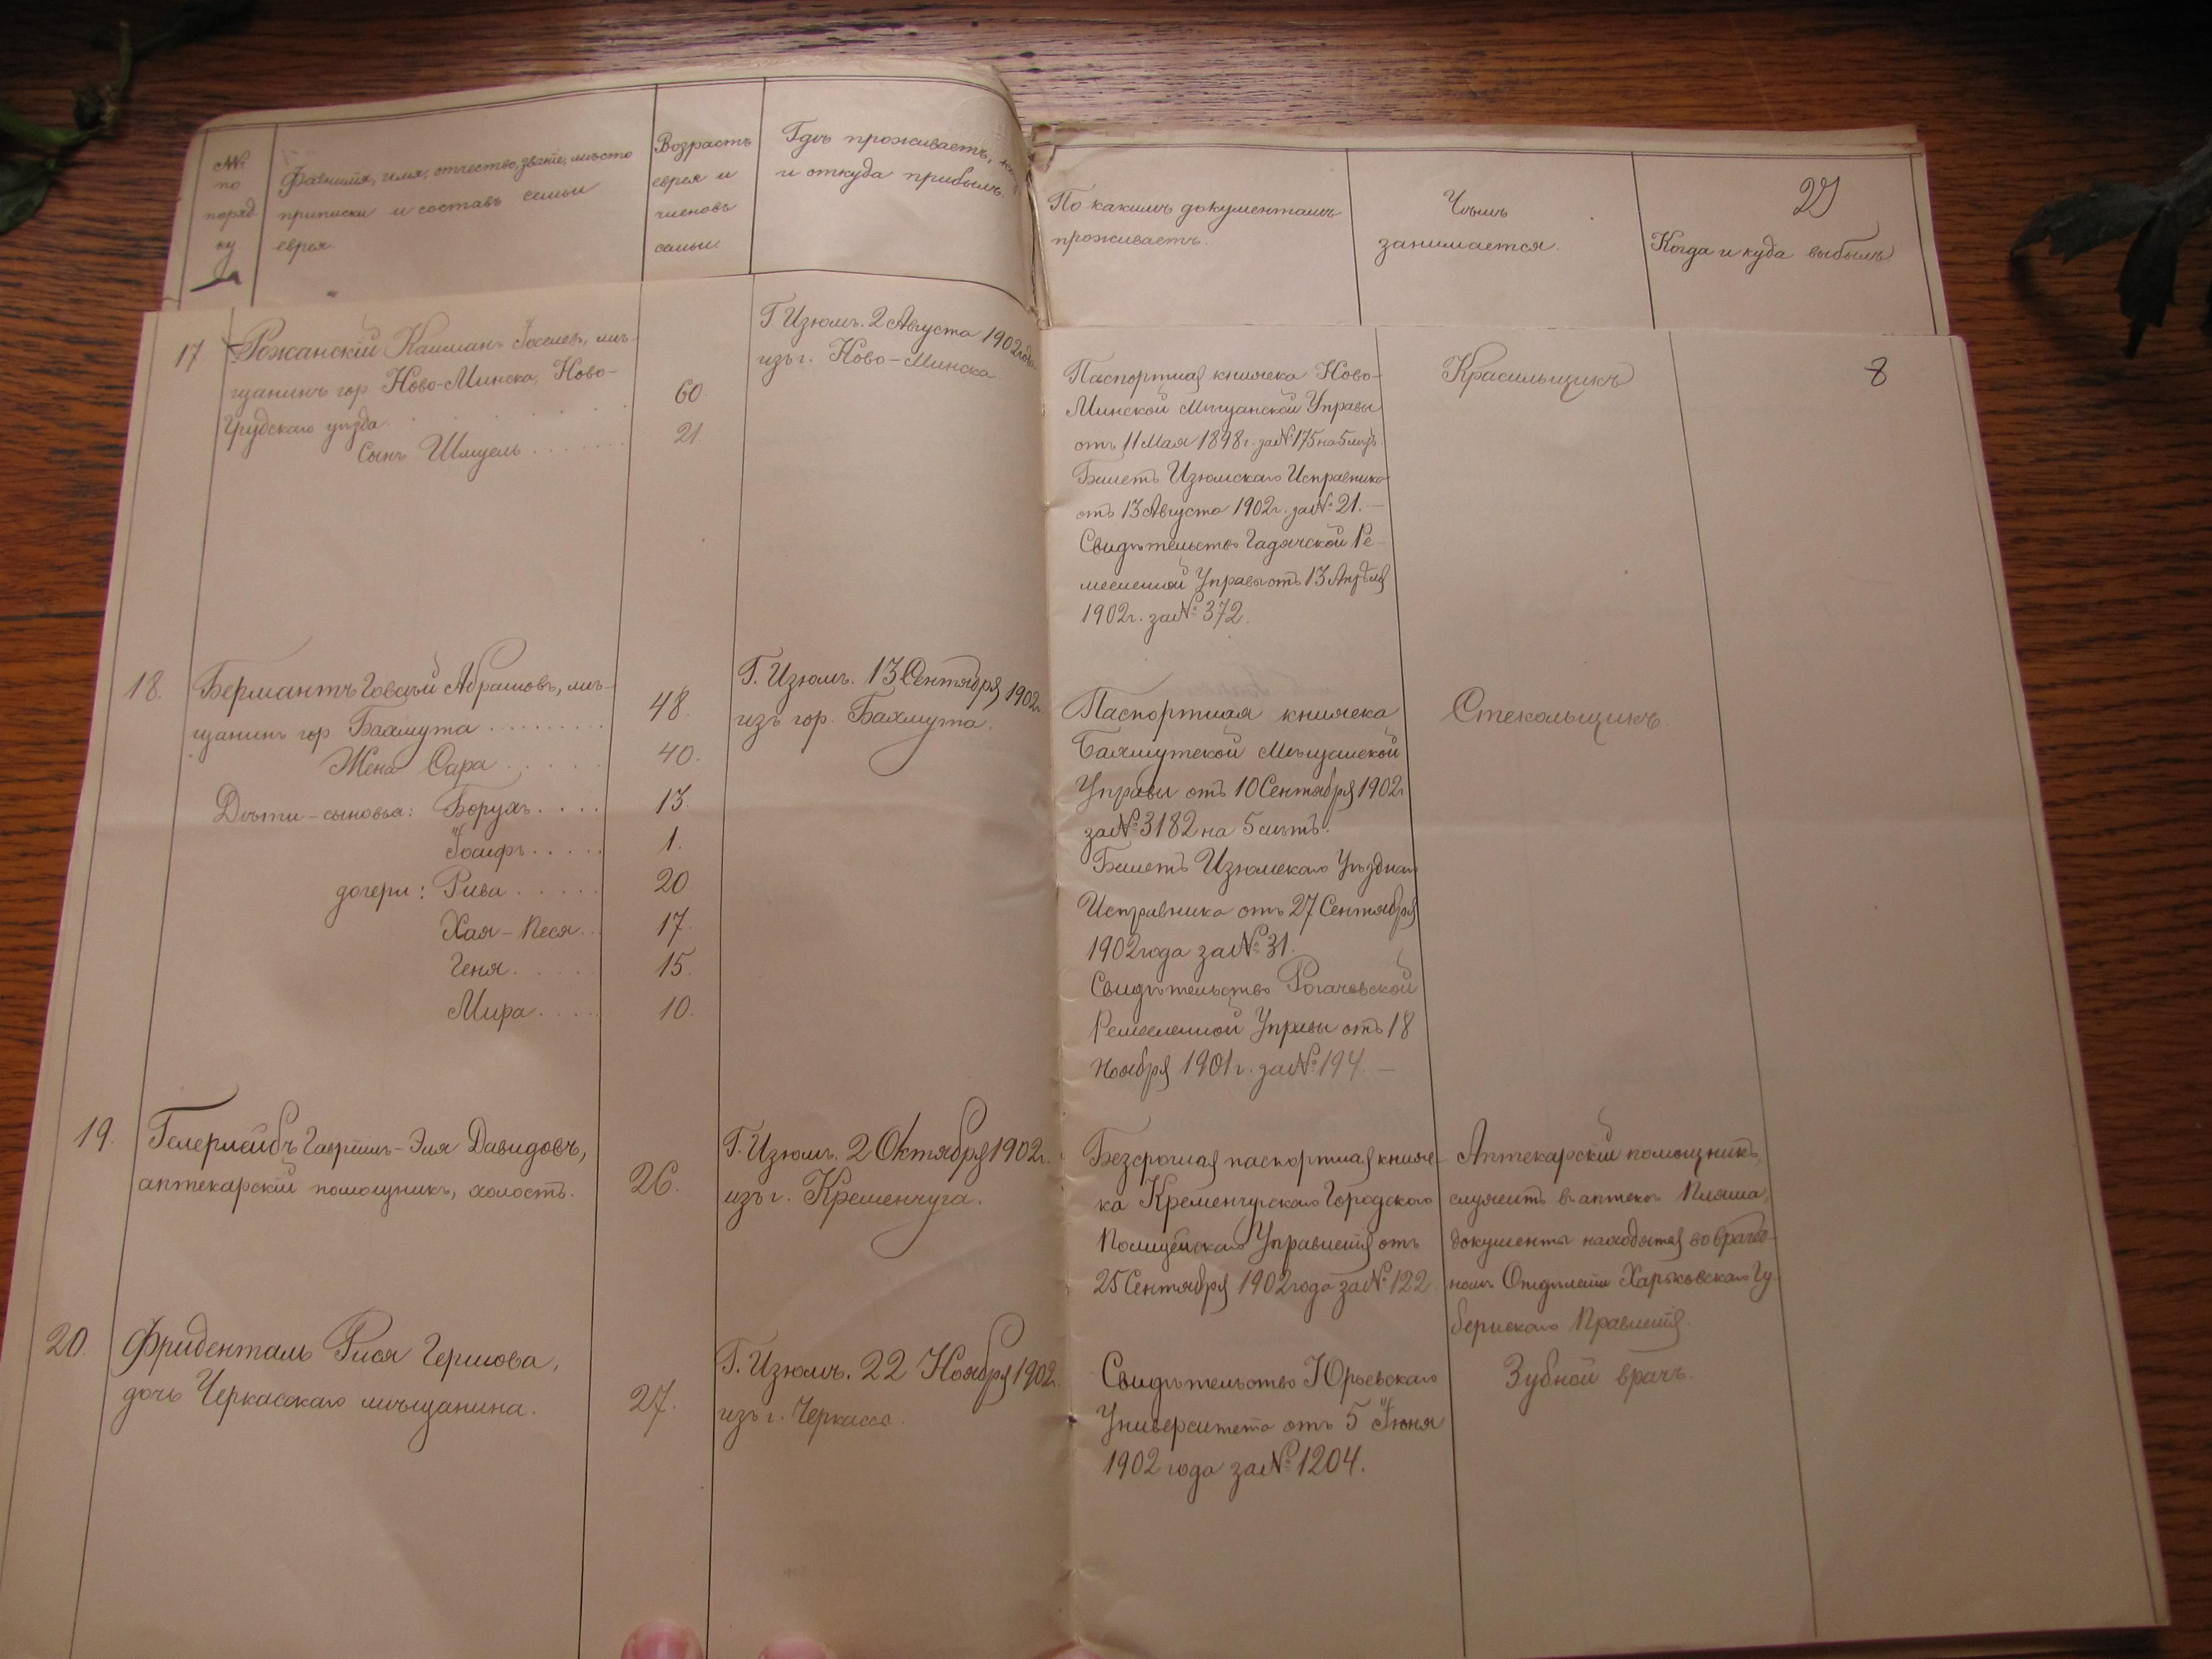 №№ по поряд ку
Фамилія, имя, отчество, званіе, мѣсто
приписки и составъ семьи
еврея.
Возрастъ
еврея и
членовъ
семьи.
Гдѣ проживаетъ,
и откуда прибылъ.
По какимъ документамъ
проживаетъ.
Чѣмъ
занимается.
Когда и куда выбылъ
17
Рожанскій Калманъ Іоселевъ, мѣ-
щанинъ гор Ново-Минска, Ново-
Грудскаго уѣзда.
60.
Сынъ Шмуель
21.
Г Изюмъ. 2 Августа 1902 года
изъ г. Ново-Минска.
Паспортная книжка Ново-
Минской Мѣщанской Управы
отъ 11 Мая 1898 г. за № 175 на 5 лѣтъ.
Билетъ Изюмскаго Исправника
отъ 13 Августа 1902 г. за № 21. —
Свидѣтельство Гадячской Ре-
месленной Управы отъ 13 Апрѣля
1902 г. за № 372.
Красильщикъ
8
18.
Бермантъ Говсѣй Абрамовъ, мѣ-
щанинъ гор Бахмута
48.
Жена Сара
40.
Дѣти-сыновья: Борухъ
13.
Іосифъ
1.
дочери: Рива
20
Хая-Песя
17.
Геня
15.
Мира
10.
Г. Изюмъ. 13 Сентября 1902 г.
изъ гор. Бахмута.
Паспортная книжка
Бахмутской Мѣщанской
Управы отъ 10 Сентября 1902 г
за № 3182 на 5 лѣтъ.
Билетъ Изюмскаго Уѣзднаго
Исправника отъ 27 Сентября
1902 года за № 31.
Свидѣтельство Рогачевской
Ремесленной Управы отъ 18
Ноября 1901 г. за № 194. —
Стекольщикъ.
19.
Гавріилъ-Эля Давидовъ,
аптекарскій помощникъ, холостъ.
26.
Г. Изюмъ. 2 Октября 1902 г.
изъ г. Кременчуга.
Безсрочная паспортная книж-
ка Кременчугскаго Городского
Полицейскаго Управленія отъ
25 Сентября 1902 года за № 122
Аптекарскій помощникъ,
служитъ въ аптекѣ
документы находятся во врачеб-
номъ Отдѣленіи Харьковскаго Гу-
бернскаго Правленія.
20.
Фриденталь Рися Гершова,
дочь Черкасскаго мѣщанина.
27.
Г. Изюмъ. 22 Ноября 1902 г.
изъ г. Черкассъ.
Свидѣтельство Юрьевскаго
Университета отъ 5 Іюня
1902 года за № 1204.
Зубной врачъ.